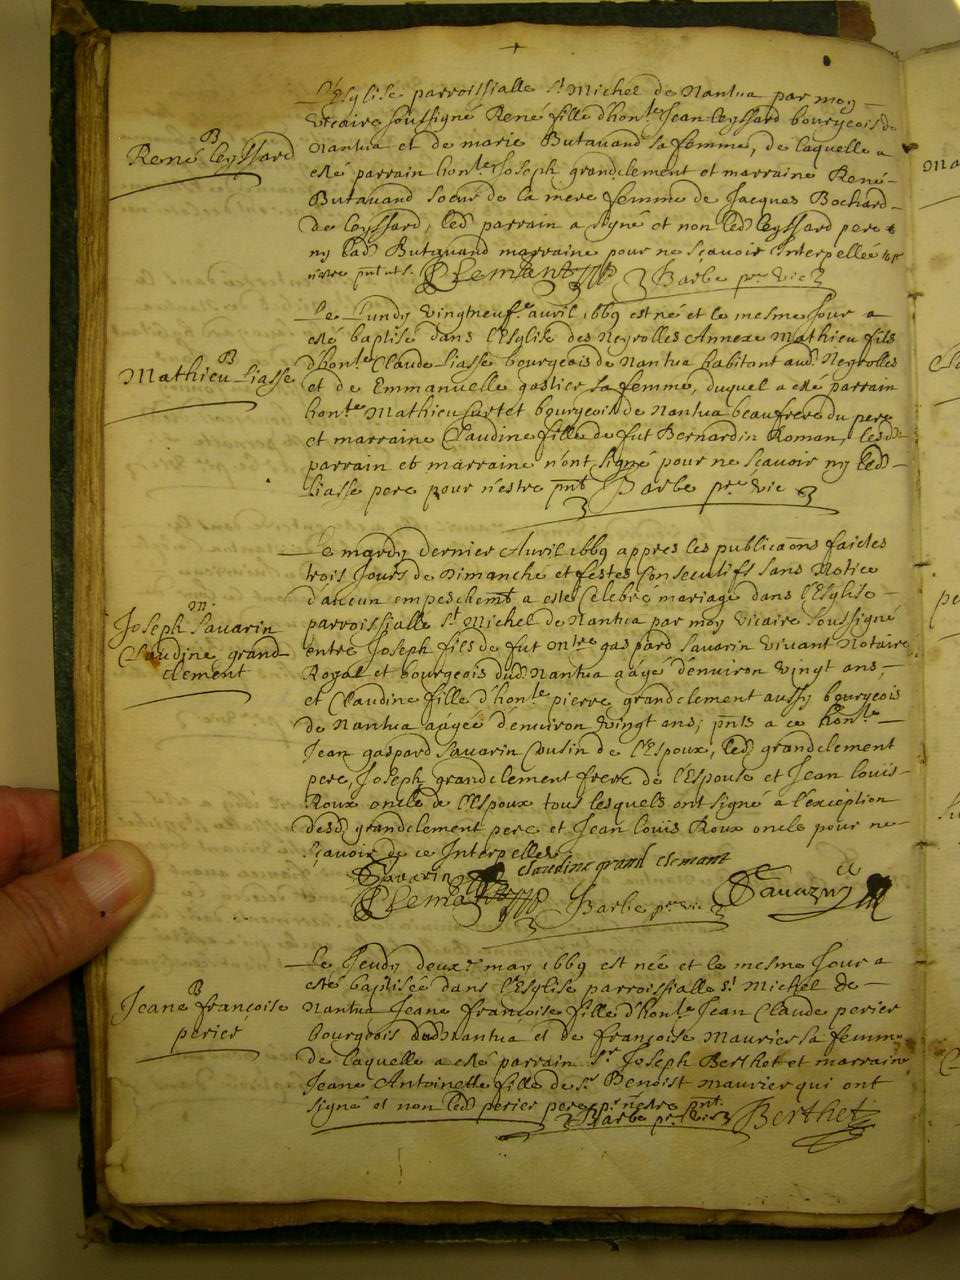 L'Esglise parroissialle St Michel de Nantua par moy
vicaire soussigné René fille d'honte Jean leyssard bourgeois de
B
René leyssard
Nantua et de marie Butavand sa femme, de laquelle a
esté parrain honte Joseph grandclement et marraine René
Butavand soeur de la mere femme de Jacques Bochard
de leyssard, led parrain a signé et non led leyssard pere
ny lad Butavand marraine pour ne sçavoir Interpellée
Barbe pre vic
Le Lundy vingtneufe avril 1669 est né et le mesme Jour a
esté baptisé dans l'Esglise des Neyrolles Annexe Mathieu fils
B
Mathieu Liasse
d'honte Claude Liasse bourgeois de Nantua habitant aud Neyrolles
et de Emmanuelle gastier sa femme, duquel a esté parrain
honte Mathieu surtet bourgeois de Nantua beaufrere du pere
et marraine Claudine fille de fut Bernardin Roman, lesd
parrain et marraine n'ont signé pour ne sçavoir ny led
Liasse pere pour n'estre pnt Barbe pre vic
Le mardy dernier Avril 1669 appres les publicaons faictes
trois Jours de Dimanche et festes Consecutifs sans Notice
d'aucun empeschemt a esté Celebré mariage dans l'Esglise
m.
Joseph Savarin
Claudine grand
clement
parroissialle St Michel de Nantua par moy vicaire soussigné
entre Joseph fils de fut mtre gaspard Savarin vivant Notaire
Royal et bourgeois dud Nantua aâgé d'environ vingt ans,
et Claudine fille d'honte pierre grandclement aussy bourgeois
de Nantua aâgée d'environ vingt ans, pnts a ce honte
Jean gaspard Savarin Cousin de l'Espoux, led grandclement
pere, Joseph grandclement frere de l'Espouse et Jean Louïs
Roux oncle de l'Espoux tous lesquels ont signé a l'exception
desd grandclement pere et Jean Louïs Roux oncle pour ne
sçavoir de ce Interpellés
Savarin claudine grand clemant
Barbe pre vic
Le Jeudy deuxe may 1669 est née et le mesme Jour a
esté baptisée dans l'Esglise parroissialle St Michel de
B
Jeane françoise
perier
Nantua Jeane françoise fille d'honte Jean Claude perier
bourgeois dud Nantua et de françoise Maurier sa femme
de laquelle a esté parrain Sr Joseph Berthet et marraine
Jeane Antoinette fille de Sr Benoist Maurier qui ont
signé et non led perier pere pr nestre pnt.
Barbe pre vic Berthet